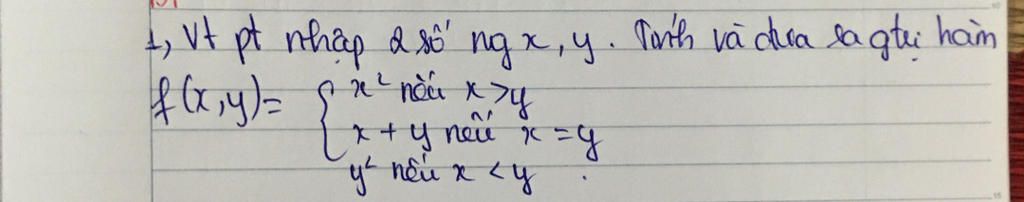 1, Vt pt nhập 2 số ng x, y. Tính và đưa ra gtrị hàm
f(x,y) = { x² nếu x > y
x + y nếu x = y
y² nếu x < y .